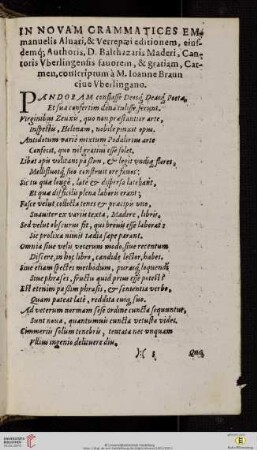 IN NOVAM GRAMMATICES EM-
manuelis Aluari, & Verrepæi editionem, eius-
demq; Authoris, D. Balthazaris Maderi, Can-
toris Vberlingensis fauorem, & gratiam, Car-
men, conscriptum à M. Ioanne Braun
ciue Vberlingano.
PANDORAM constasse Deorũ, Dearũ Poeta,
Et sua confertim dona tulisse ferunt.
Virginibus Zeuxis, quo non præstantior arte,
Inspectis, Helenam, nobile pinxit opus.
Antidotum varia mixtum Podalirius arte
Confecit, quo nel gratius esse solet.
Libat apis volitans pastum, & legit vndiq; flores,
Mellifluosq; suo construit ore fauos:
Sic tu quæ longè, latè & dispersa latebant,
Et quæ difficilis plena laboris erant;
Fasce velut collecta tenes & præcipis vno,
Suauiter ex varia texta, Madere, libris,
Sed velut obscurus fit, qui breuis esse laborat:
Sic prolixa nimis tædia sæpe parant,
Omnia siue velis veterum modo, siue recentum
Discere, in hoc libro, candide lector, habes.
Siue etiam spectes methodum, puraeq; loquendi
Siue phrases, fructu quid prius esse potest?
Est etenim passim phrasis, & sententia verbo,
Quam pateat latè, reddita cuiq; suo.
Ad veterum normam sese ordine cuncta sequuntur,
Sunt noua, quantumuis cuncta vetusta vides.
Cimmeriis solum tenebris, tentata nec vnquam
Vllius ingenio delituere diu.
)( 5 Quæ